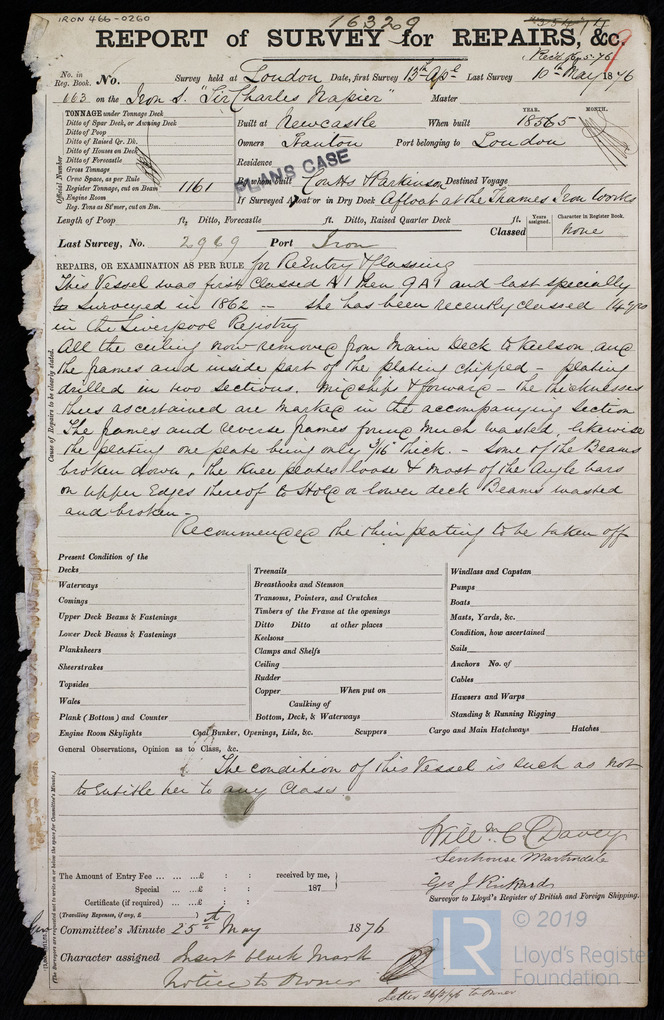 IRON 466-0260
16329
REPORT of SURVEY for REPAIRS, &c.
No. in Reg. Book. No. Survey held at London Date, first Survey 13th Apl Last Survey 10th May 1876
663 on the Iron S. "Sir Charles Napier" Master
TONNAGE under Tonnage Deck
Ditto of Spar Deck, or Awning Deck
Ditto of Poop
Ditto of Raised Qr. Dk.
Ditto of Houses on Deck
Ditto of Forecastle
Gross Tonnage
Crew Space, as per Rule
Register Tonnage, cut on Beam 1161
Engine Room
Reg. Tons as St'mer, cut on Bm.
Official Number
YEAR. MONTH.
Built at Newcastle When built 18565
Owners Port belonging to London
Residence
PLANS CASE
By whom built Coutts & Parkinson Destined Voyage
If Surveyed Afloat or in Dry Dock Afloat at the Thames Iron Works
Length of Poop ft., Ditto, Forecastle ft. Ditto, Raised Quarter Deck ft.
Years assigned. Character in Register Book.
Classed none
Last Survey, No. 2969 Port Iron
REPAIRS, OR EXAMINATION AS PER RULE for ReEntry & Classing
This Vessel was first Classed A1 then 9A1 and last specially
Surveyed in 1862 — she has been recently classed 14 yrs
in the Liverpool Registry
All the ceiling now removed from Main Deck to keelson and
the frames and inside part of the plating chipped – plating
drilled in two sections. Midships & forward – the thicknesses
thus ascertained are marked in the accompanying Section
The frames and reverse frames found much wasted, likewise
the plating one plate being only /16 thick. – Some of the Beams
broken down, the knee plates loose & most of the Angle bars
on upper Edges thereof to Hold or lower deck Beams wasted
and broken –
Recommended the thin plating to be taken off
Cause of Repairs to be clearly stated.
Present Condition of the
Decks
Waterways
Comings
Upper Deck Beams & Fastenings
Lower Deck Beams & Fastenings
Planksheers
Sheerstrakes
Topsides
Wales
Plank (Bottom) and Counter
Treenails
Breasthooks and Stemson
Transoms, Pointers, and Crutches
Timbers of the Frame at the openings
Ditto Ditto at other places
Keelsons
Clamps and Shelfs
Ceiling
Rudder
Copper When put on
Caulking of
Bottom, Deck, & Waterways
Windlass and Capstan
Pumps
Boats
Masts, Yards, &c.
Condition, how ascertained
Sails
Anchors No. of
Cables
Hawsers and Warps
Standing & Running Rigging
Engine Room Skylights Coal Bunker, Openings, Lids, &c. Scuppers Cargo and Main Hatchways Hatches
General Observations, Opinion as to Class, &c.
The condition of this Vessel is such as not
to Entitle her to any Class
Willm. C. Davey
Senhouse Martindale
Geo J Rickards
Surveyor to Lloyd's Register of British and Foreign Shipping.
The Amount of Entry Fee ... ... £ : : received by me,
Special ... £ : : 187
Certificate (if required) ... £ : :
(Travelling Expenses, if any, £
Committee's Minute 25th May 1876
Character assigned Insert black mark
Notice to Owner
Letter 26/5/76 to owner
LR © 2019
Lloyd's Register
Foundation